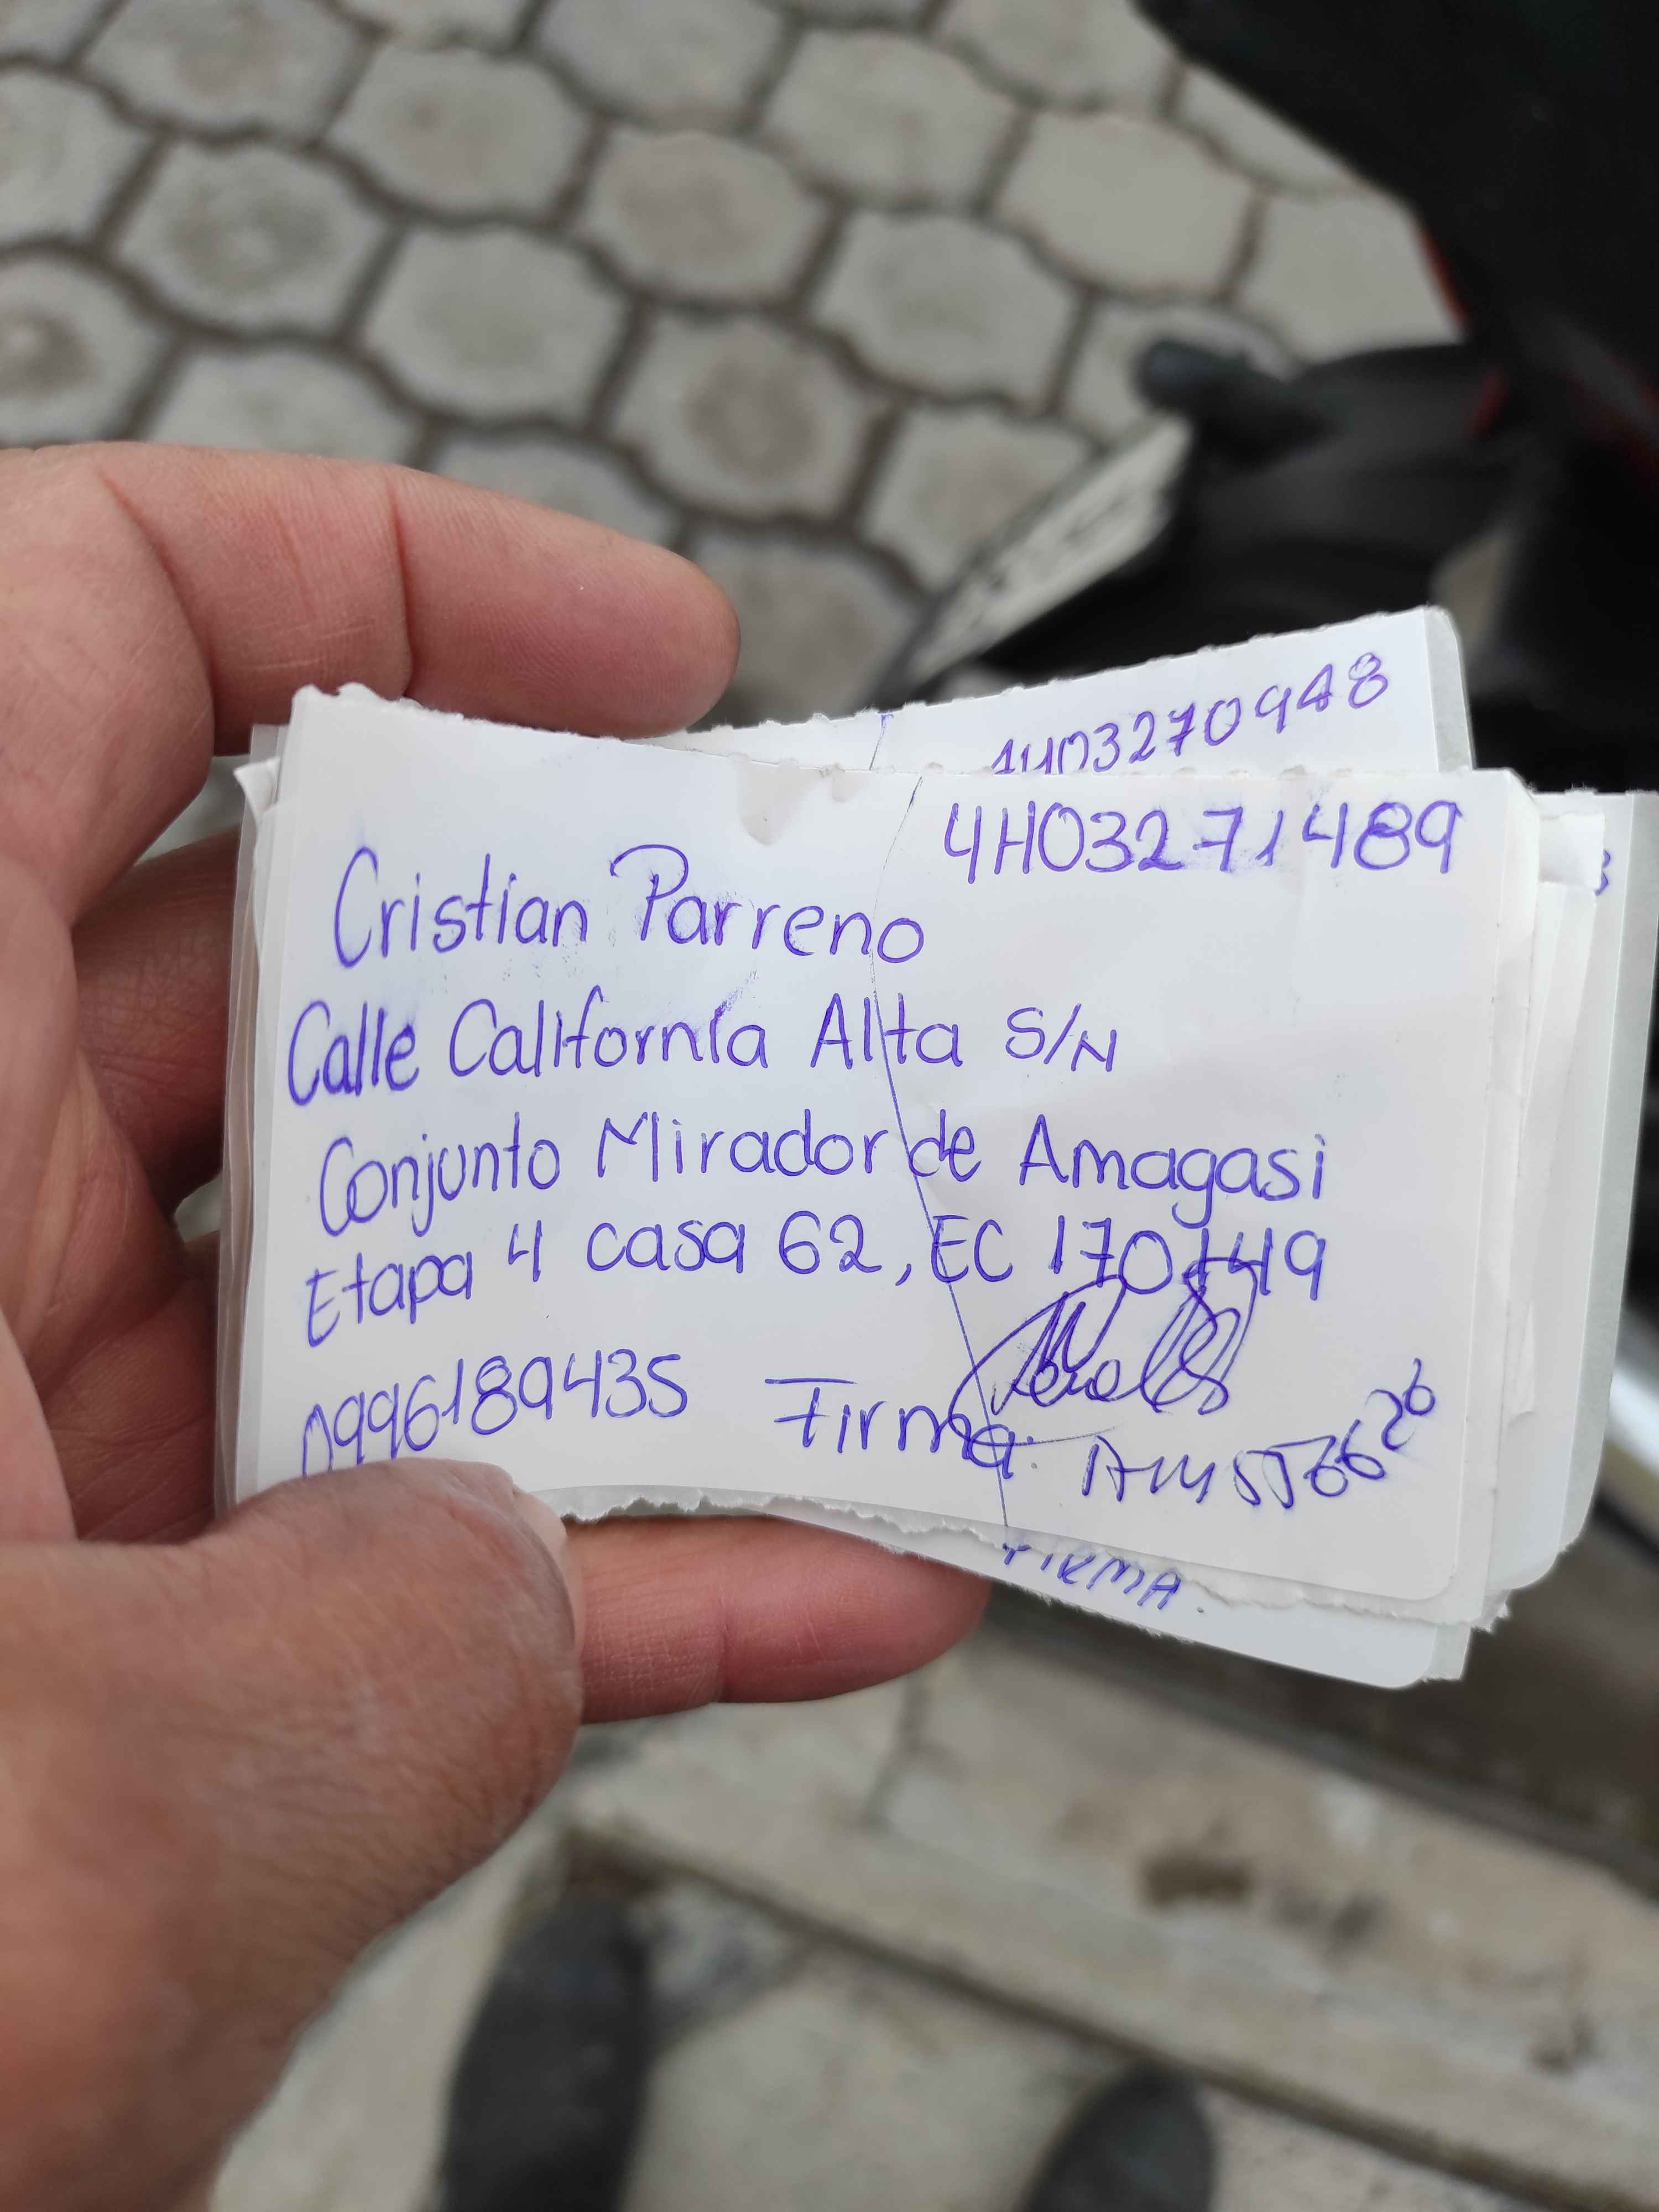 4H03270948
4H03271489
Cristian Parreno
Calle California Alta S/N
Conjunto Mirador de Amagasi
Etapa 4 casa 62, EC 170149
0996189435 Firma:
FIRMA.